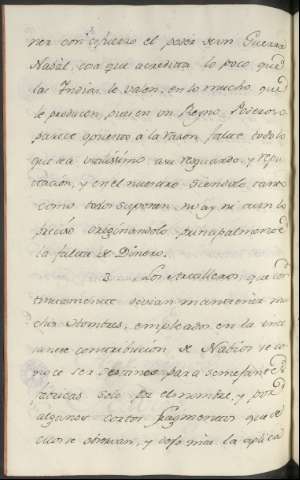 ner con esfuerzo el poder de un Guerra
Nabal, con que acredita lo poco que
las Indias le valen, en lo mucho que
le producen, pues en un Reyno Poderoso
parece opuesto a la razon, falte todo lo
que sea utilissimo a su resguardo, y repu
tacion, y en el nuestro siendolo, tanto
como todos suponen, no ay, ni aun lo
preciso originandolo principalmente
la falta de Dinero.
3 Los que con
tinuamente devian mantener mu
chos Hombres, empleados en la ince
sante contribucion de Nabios se co
noce ser destinos para semejantes
fabricas solo por el nombre, y por
algunos cortos fragmentos que de
ellos se observan, y de la aplica